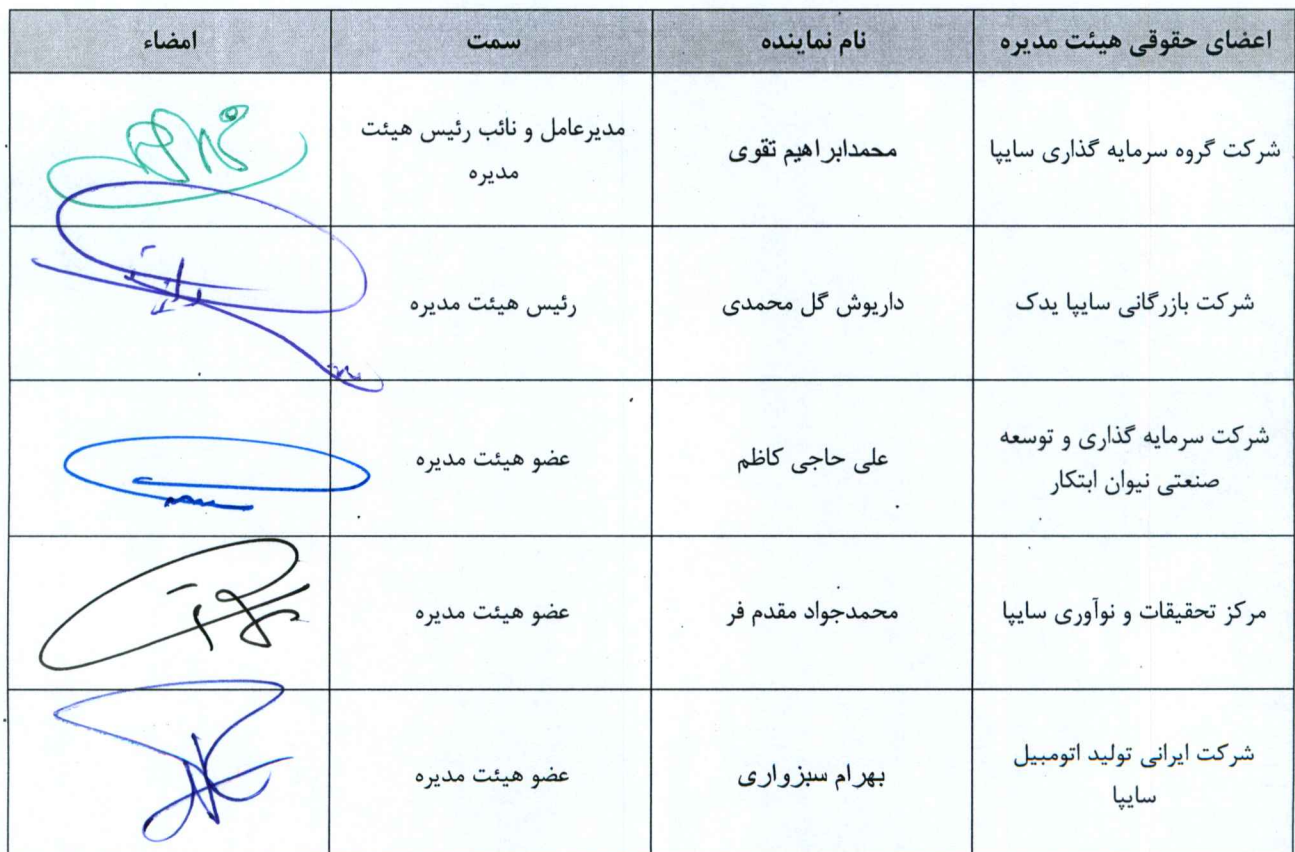 اعضای حقوقی هیئت مدیره نام نماینده سمت امضاء
شرکت گروه سرمایه گذاری سایپا محمدابراهیم تقوی مدیرعامل و نائب رئیس هیئت
مدیره
شرکت بازرگانی سایپا یدک داریوش گل محمدی رئیس هیئت مدیره
شرکت سرمایه گذاری و توسعه
صنعتی نیوان ابتکار علی حاجی کاظم عضو هیئت مدیره
مرکز تحقیقات و نوآوری سایپا محمدجواد مقدم فر عضو هیئت مدیره
شرکت ایرانی تولید اتومبیل
سایپا بهرام سبزواری عضو هیئت مدیره